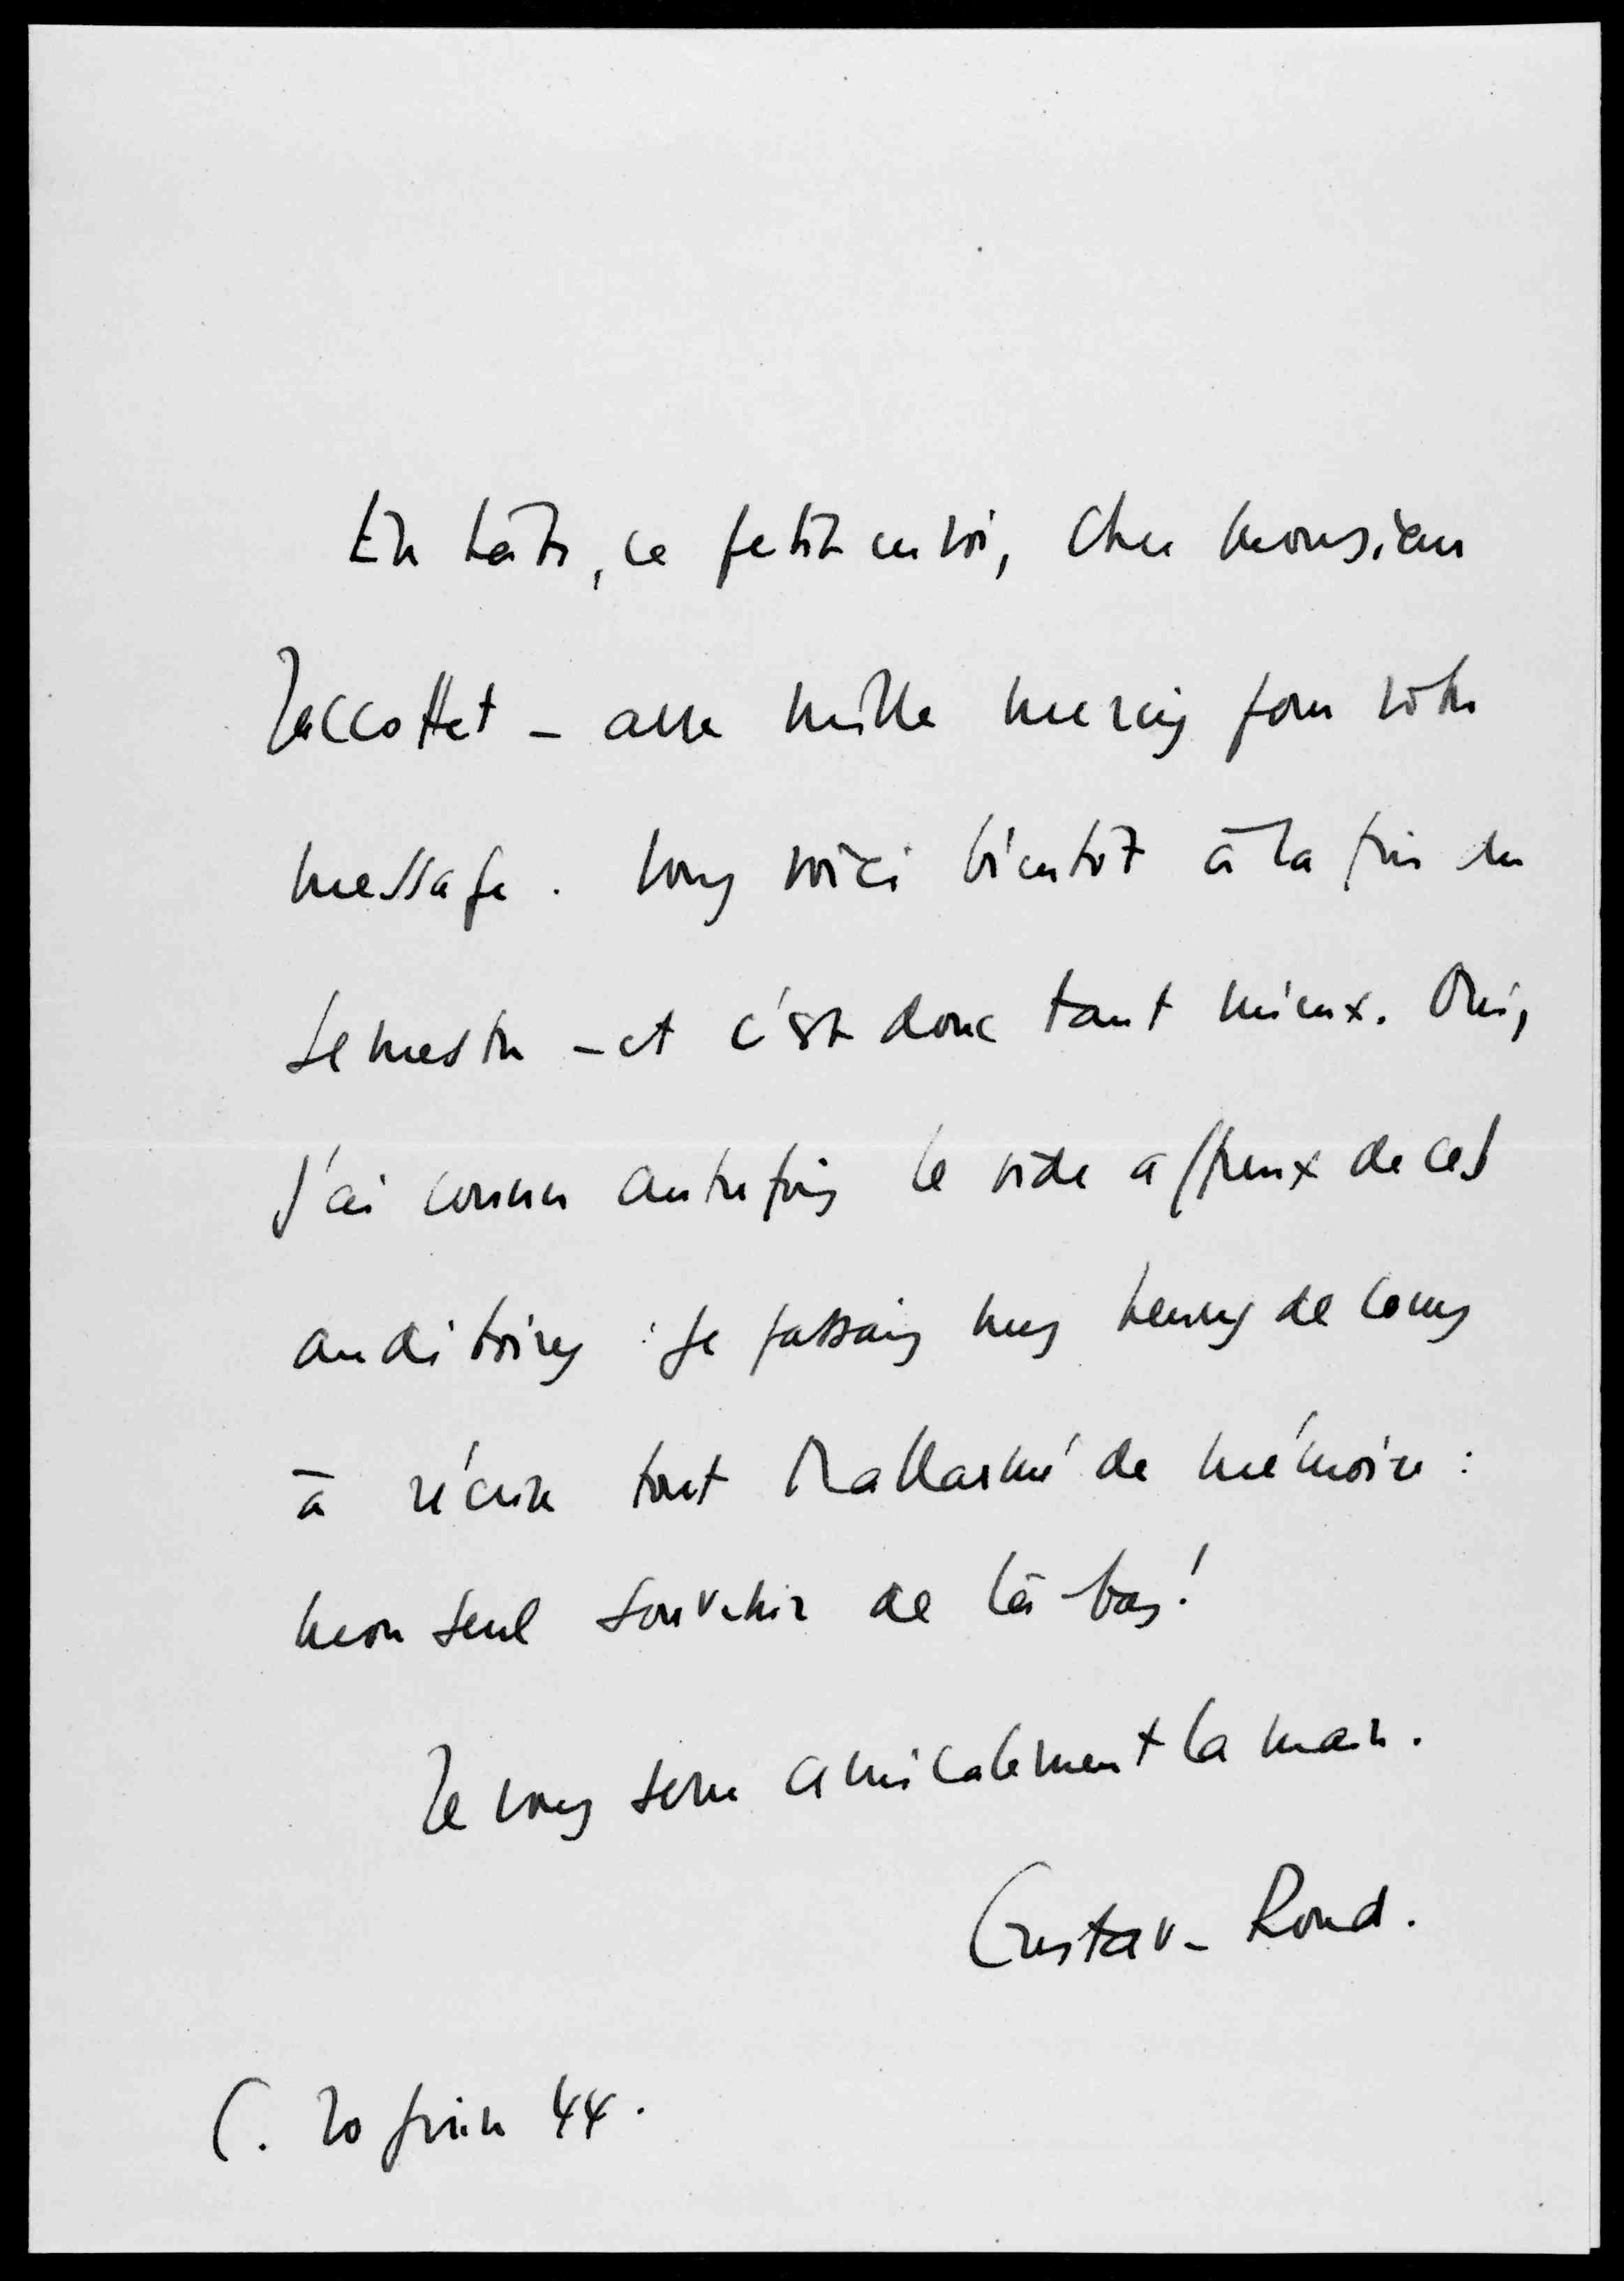 En hâte, ce petit envoi, cher Monsieur
Jaccottet – avec mille mercis pour votre
message. Vous voici bientôt à la fin du
semestre – et c'est donc tant mieux. Oui,
j'ai connu autrefois le vide affreux de ces
auditoires : je passais mes heures de cours
à récrire tout Mallarmé de mémoire :
mon seul souvenir de là-bas !
Je vous serre amicalement la main.
Gustave Roud.
C. 20 juin 44.